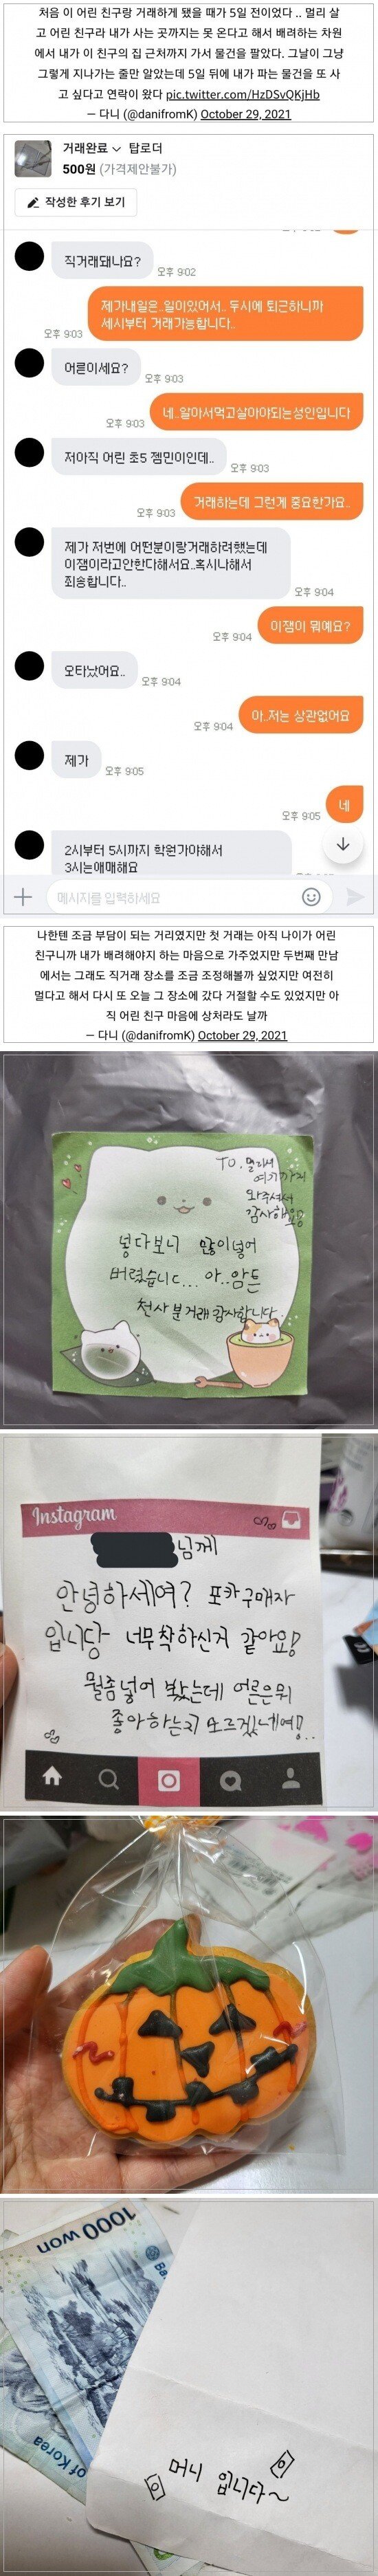 처음 이 어린 친구랑 거래하게 됐을 때가 5일 전이었다 .. 멀리 살
고 어린 친구라 내가 사는 곳까지는 못 온다고 해서 배려하는 차원
에서 내가 이 친구의 집 근처까지 가서 물건을 팔았다. 그날이 그냥
그렇게 지나가는 줄만 알았는데 5일 뒤에 내가 파는 물건을 또 사
고 싶다고 연락이 왔다 pic.twitter.com/HzDSvQKjHb
— 다니 (@danifromK) October 29, 2021
거래완료 탑로더
500원 (가격제안불가)
작성한 후기 보기
직거래돼나요?
오후 9:02
제가내일은..일이있어서.. 두시에 퇴근하니까
세시부터 거래가능합니다..
오후 9:03
어른이세요?
오후 9:03
네..알아서먹고살아야되는성인입니다
오후 9:03
저아직 어린 초5 잼민이인데..
오후 9:03
거래하는데 그런게 중요한가요..
오후 9:03
제가 저번에 어떤분이랑거래하려했는데
이잼이라고안한다해서요..혹시나해서
죄송합니다..
오후 9:04
이잼이 뭐예요?
오후 9:04
오타났어요..
오후 9:04
아..저는 상관없어요
오후 9:04
제가
오후 9:05
네
오후 9:05
2시부터 5시까지 학원가야해서
3시는애매해요
메시지를 입력하세요
나한텐 조금 부담이 되는 거리였지만 첫 거래는 아직 나이가 어린
친구니까 내가 배려해야지 하는 마음으로 가주었지만 두번째 만남
에서는 그래도 직거래 장소를 조금 조정해볼까 싶었지만 여전히
멀다고 해서 다시 또 오늘 그 장소에 갔다 거절할 수도 있었지만 아
직 어린 친구 마음에 상처라도 날까
— 다니 (@danifromK) October 29, 2021
TO. 멀리서
여기까지
와주셔서
감사해요
넣다보니 많이넣어
버렸습니다... 아..암튼
천사분거래 감사합니다
Instagram
님께
안녕하세여? 포카구매자
입니당 너무착하신거 같아요!
뭘좀넣어 봤는데 어른은뭐
좋아하는지 모르겠네여!..
1000 won
Ba
of Korea
머니 입니다~